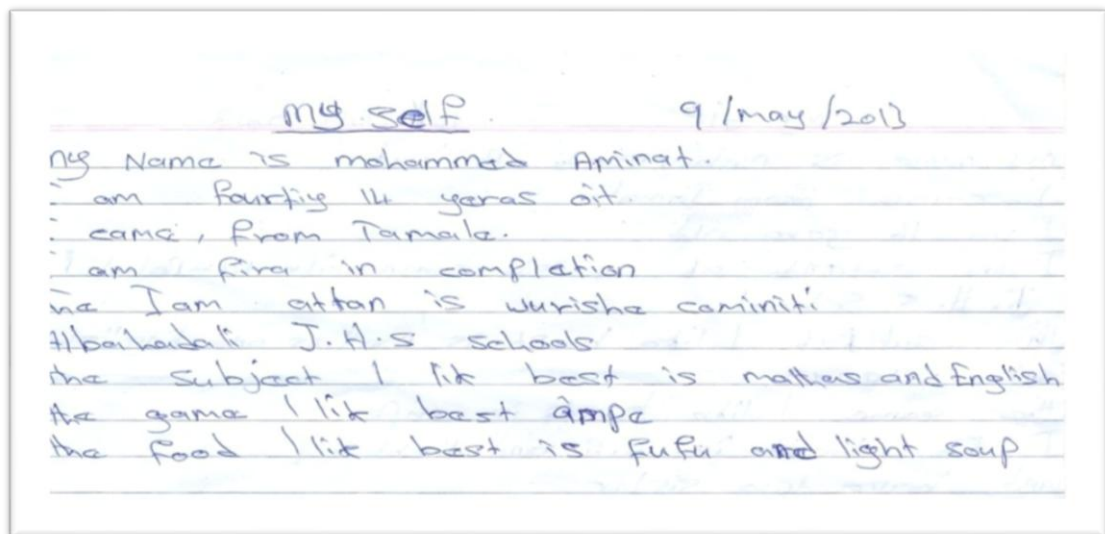 my self 9/may/2013
my Name is mohammed Aminat.
i am fourtig 14 yeras oit.
i came, from Tamale.
i am fira in completion
the I am attan is wurishe caminiti
Albaihadali J.H.S schools
the subject I lik best is mathes and English
the game I lik best ampe
the food I lik best is fufu and light soup